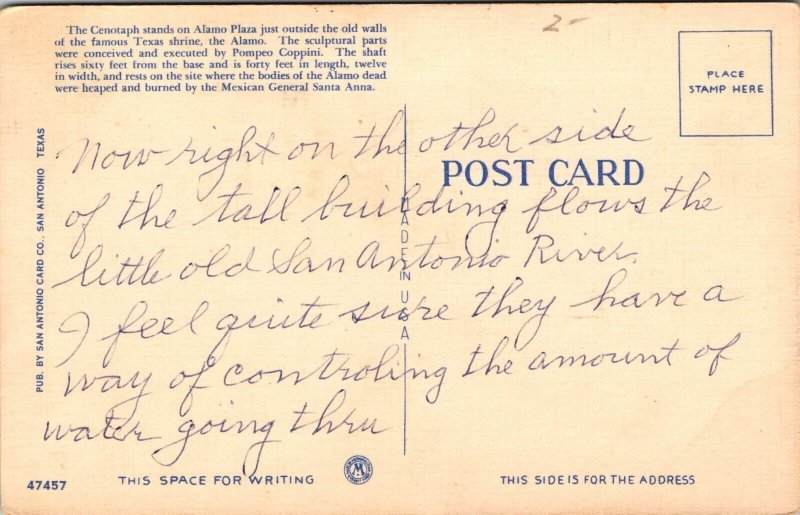 The Cenotaph stands on Alamo Plaza just outside the old walls
of the famous Texas shrine, the Alamo. The sculptural parts
were conceived and executed by Pompeo Coppini. The shaft
rises sixty feet from the base and is forty feet in length, twelve
in width, and rests on the site where the bodies of the Alamo dead
were heaped and burned by the Mexican General Santa Anna.
2-
PLACE
STAMP HERE
POST CARD
Now right on the other side
of the tall building flows the
little old San Antonio River.
I feel quite sure they have a
way of controling the amount of
water going thru
MADE IN USA
PUB. BY SAN ANTONIO CARD CO., SAN ANTONIO TEXAS
47457
THIS SPACE FOR WRITING
THIS SIDE IS FOR THE ADDRESS